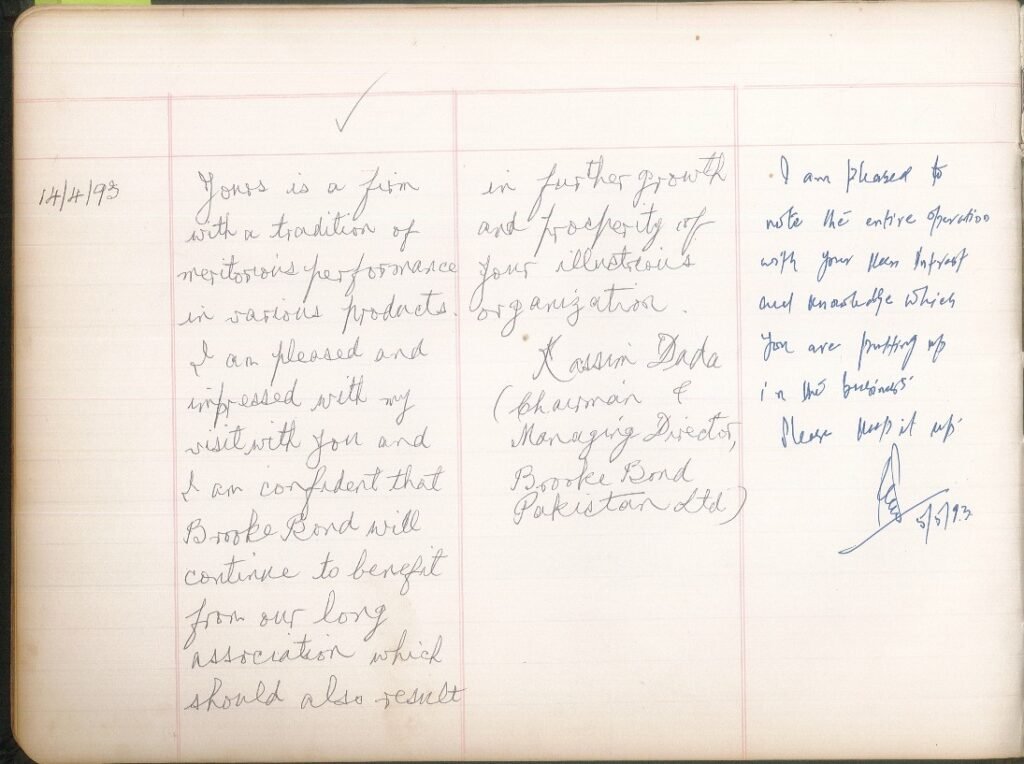 14/4/93
Yours is a firm
with a tradition of
meritorious performance
in various products.
I am pleased and
impressed with my
visit with you and
I am confident that
Brooke Bond will
continue to benefit
from our long
association which
should also result
in further growth
and prosperity of
your illustrious
organization.
Kassim Dada
(Chairman &
Managing Director,
Brooke Bond
Pakistan Ltd)
I am pleased to
note the entire operation
with your keen Intrest
and knowledge which
you are putting up
in the business.
Please keep it up.
5/5/93